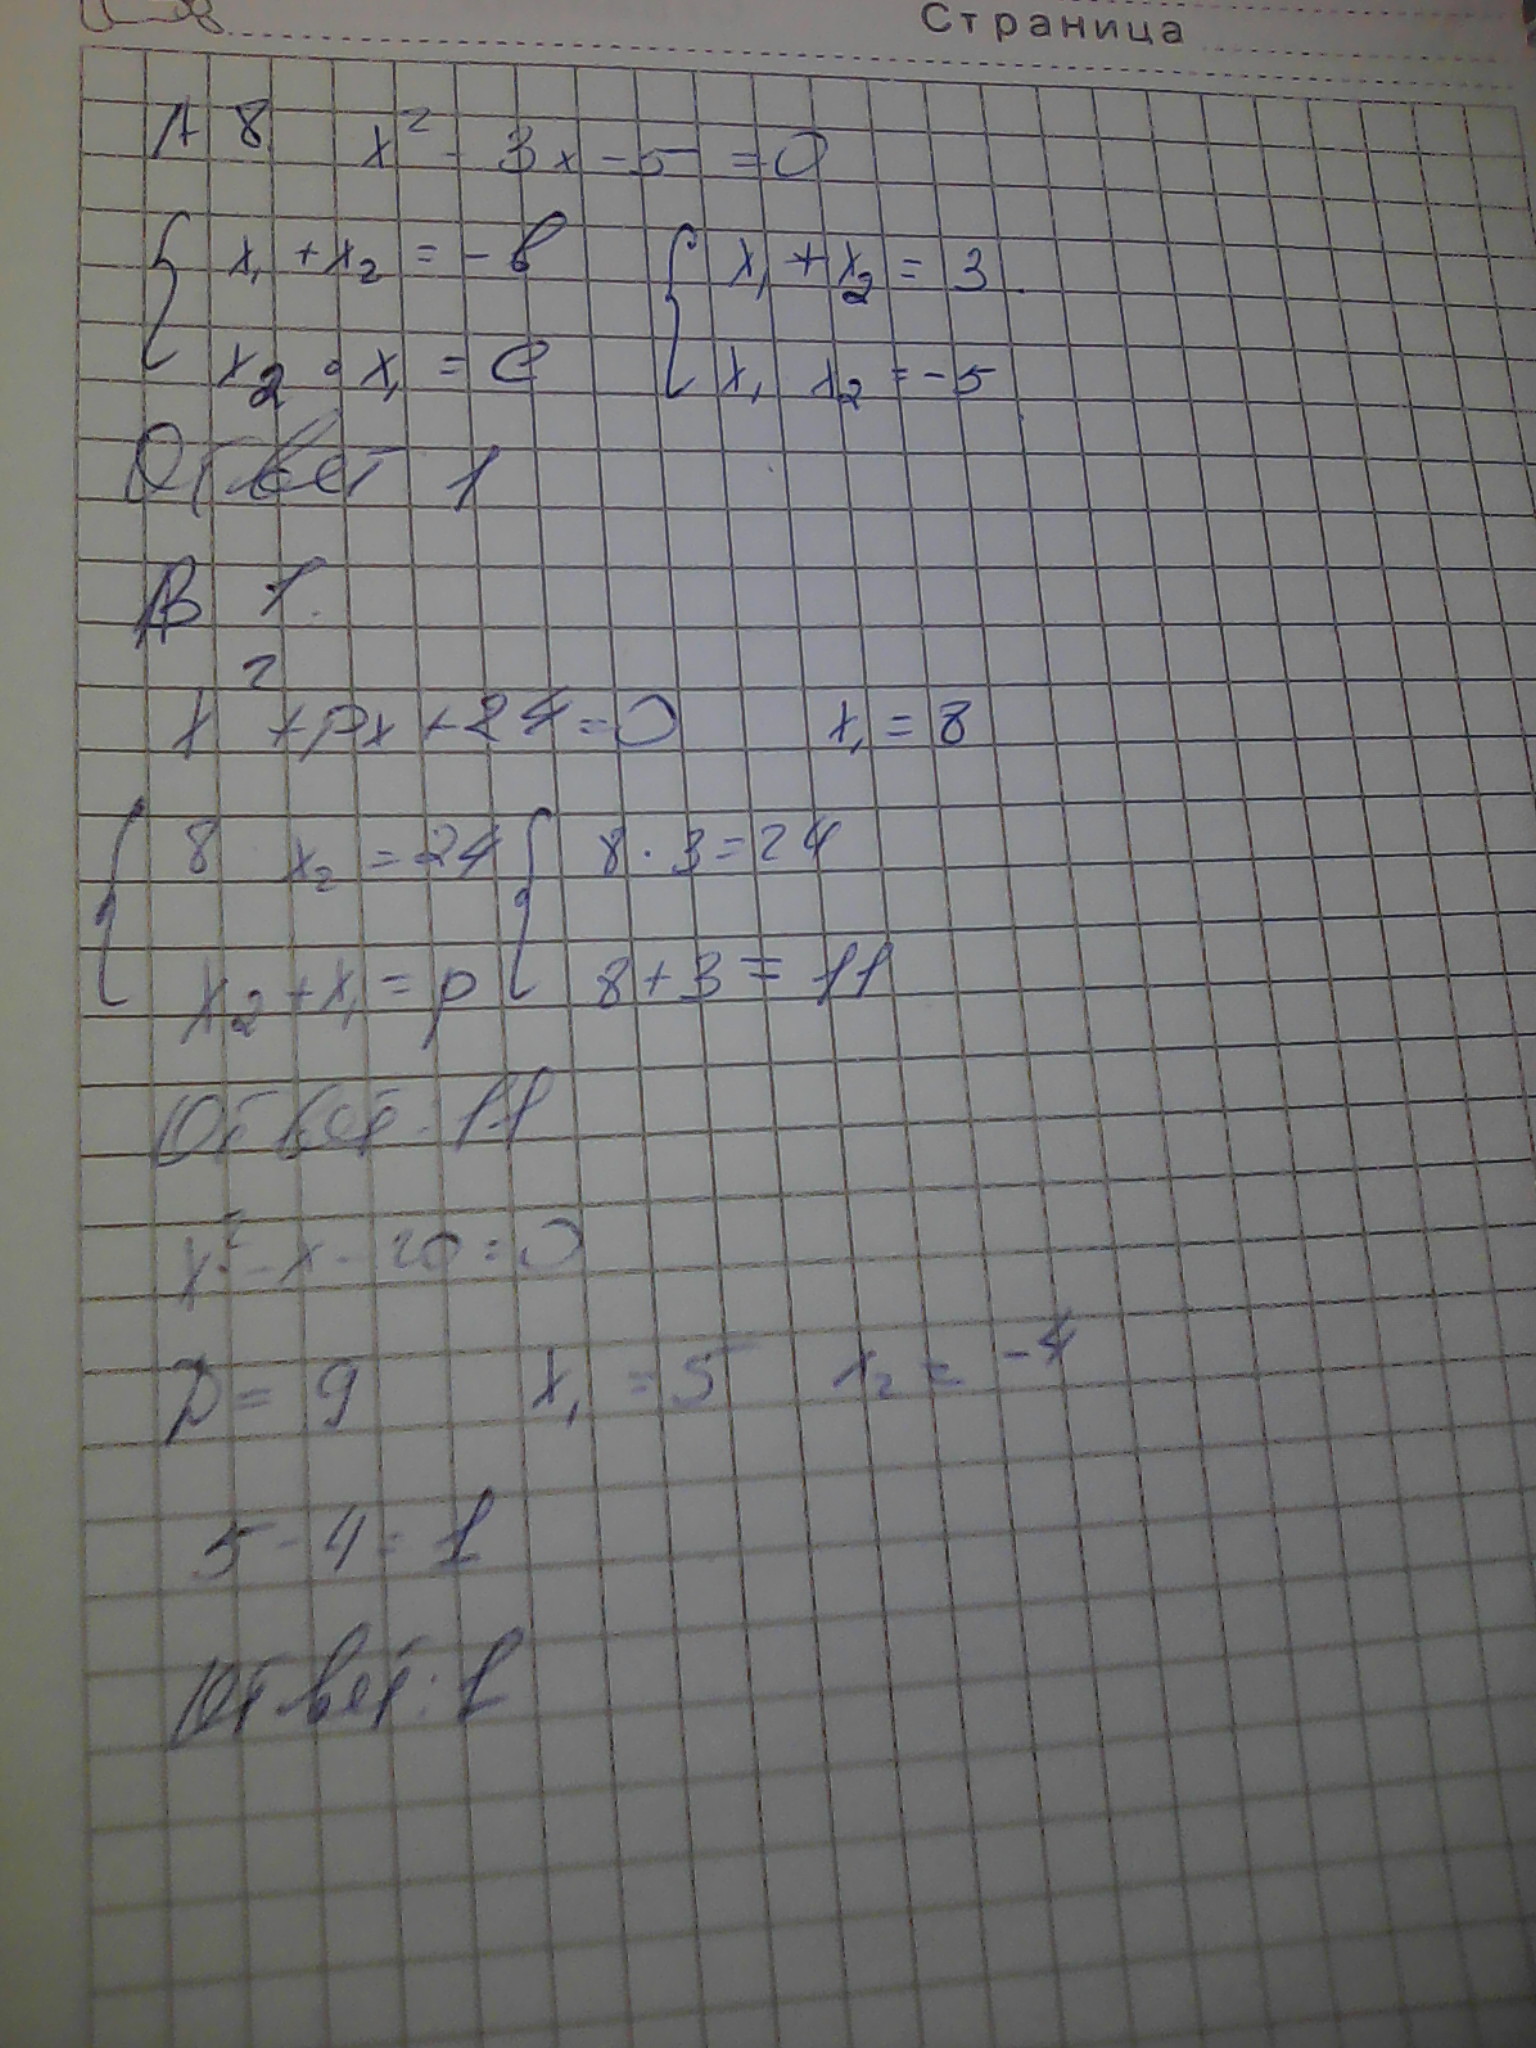 Страница
А 8 x² - 3x - 5 = 0
{ x₁ + x₂ = - в { x₁ + x₂ = 3
x₂ · x₁ = с x₁ x₂ = -5
Ответ 1
В 1.
x² + px + 24 = 0 x₁ = 8
{ 8 x₂ = 24 { 8 · 3 = 24
x₂ + x₁ = p 8 + 3 = 11
Ответ: 11
x² - x - 20 = 0
D = 9 x₁ = 5 x₂ = -4
5 - 4 = 1
Ответ: 1